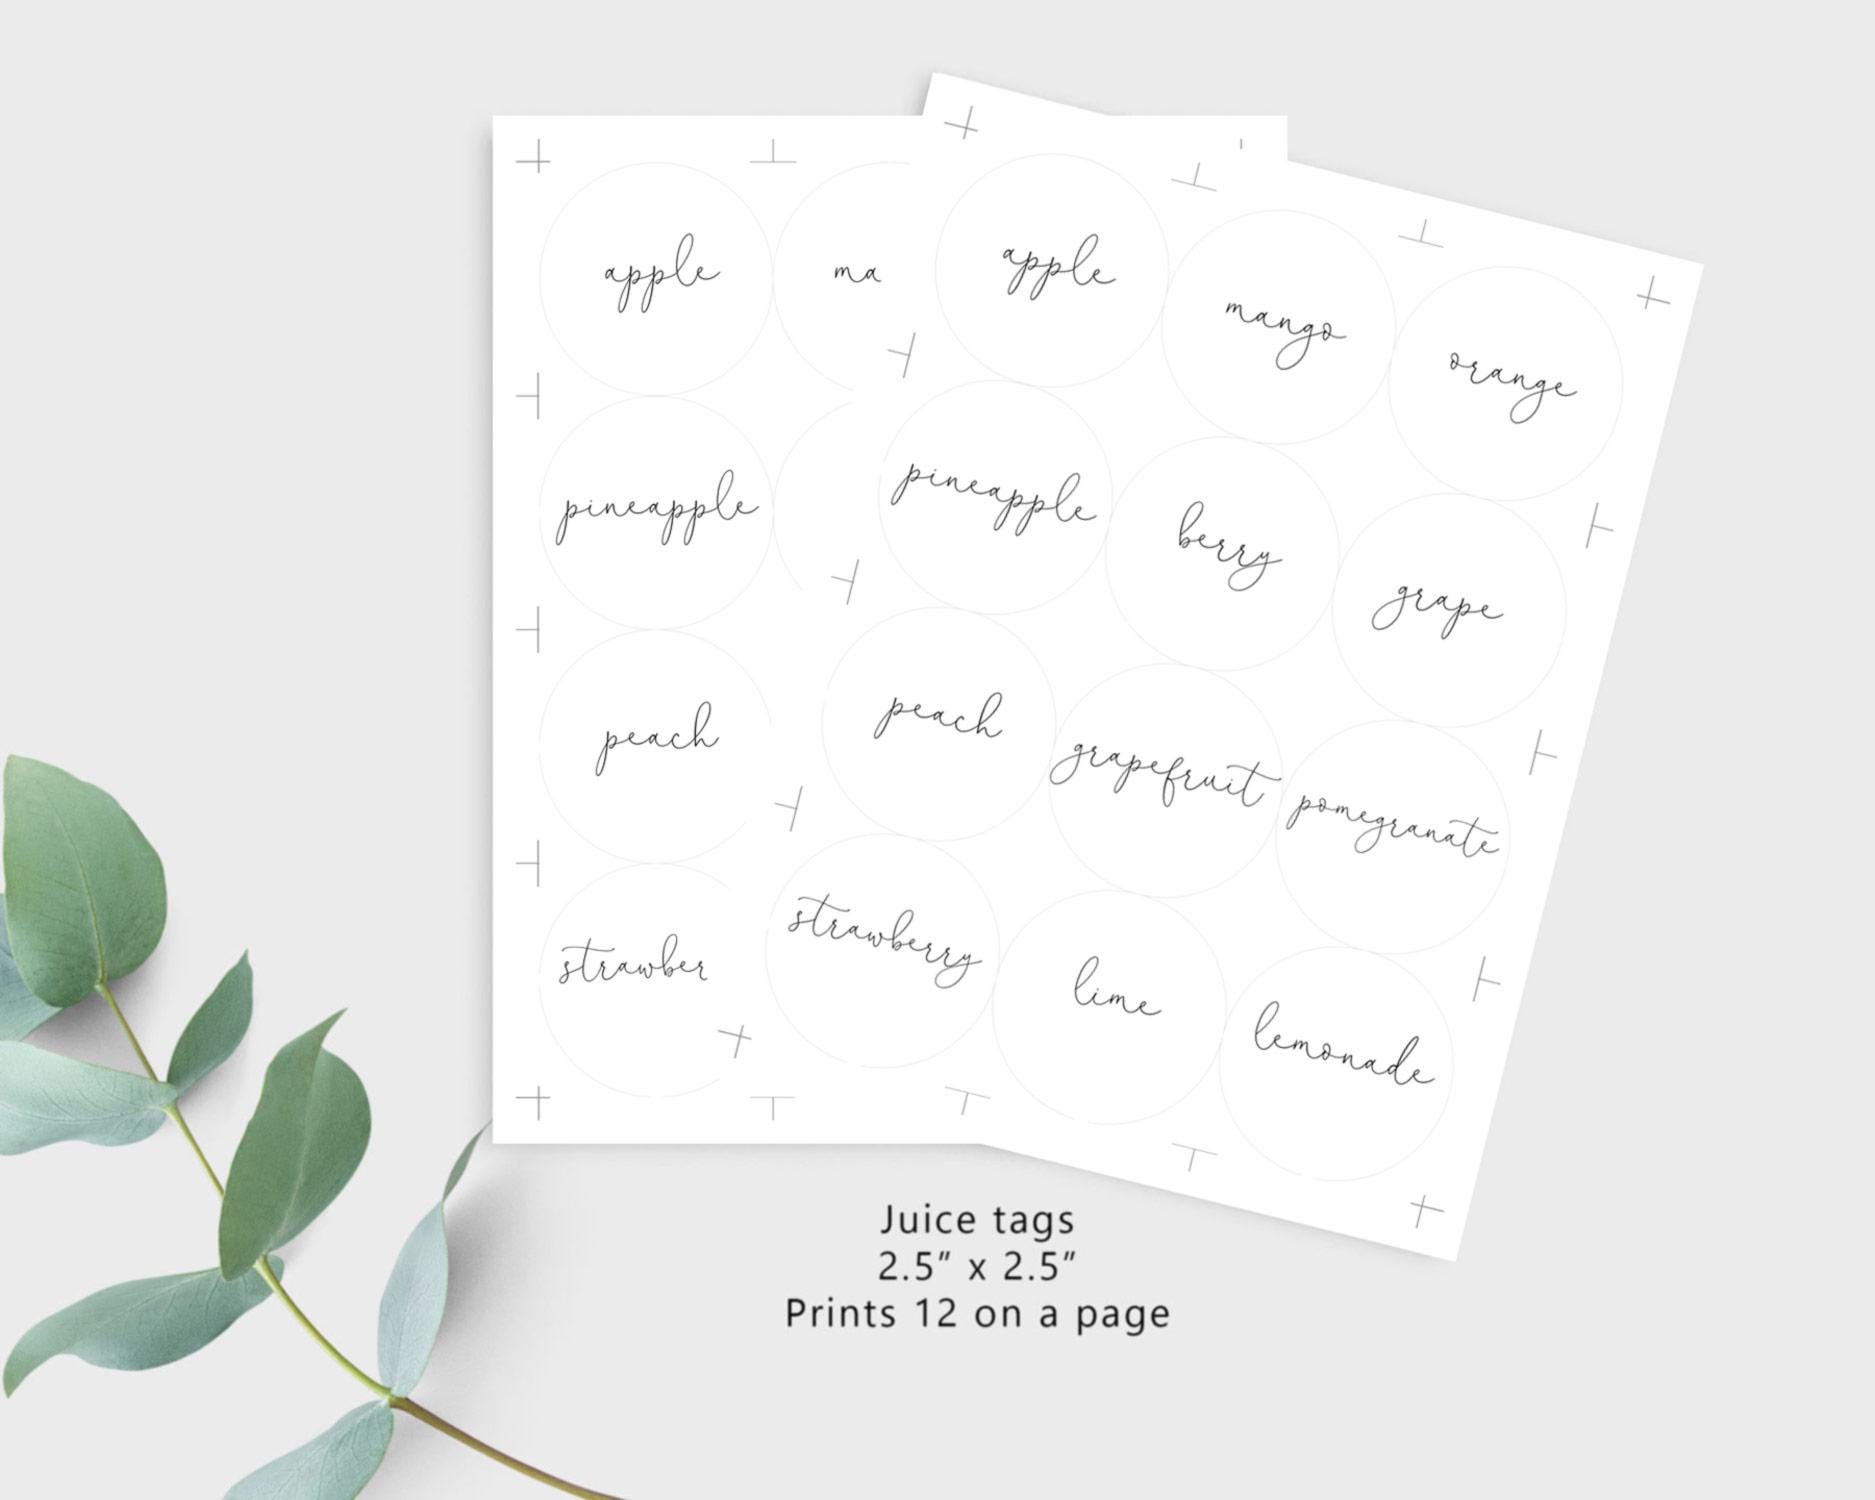 apple
ma
pineapple
peach
strawber
apple
mango
orange
pineapple
berry
grape
peach
grapefruit
pomegranate
strawberry
lime
lemonade
Juice tags
2.5" x 2.5"
Prints 12 on a page